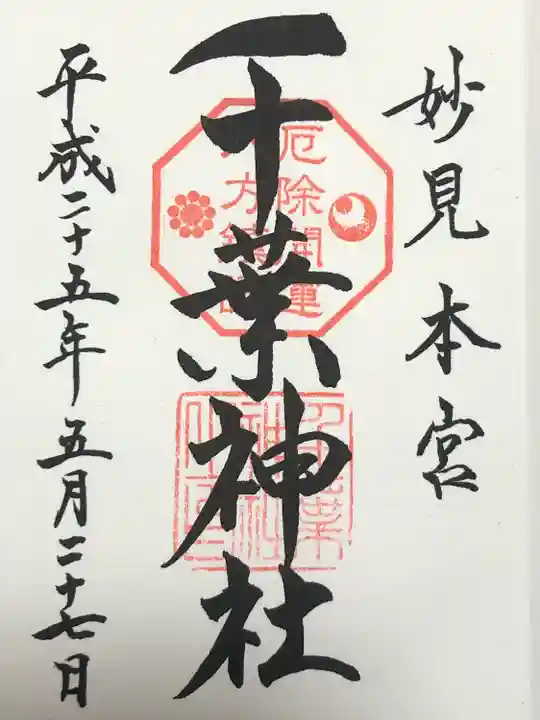 妙見本宮
千葉神社
厄除開運
八方鎮護
平成二十五年五月二十七日